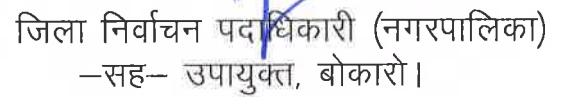 जिला निर्वाचन पदाधिकारी (नगरपालिका)
–सह– उपायुक्त, बोकारो।